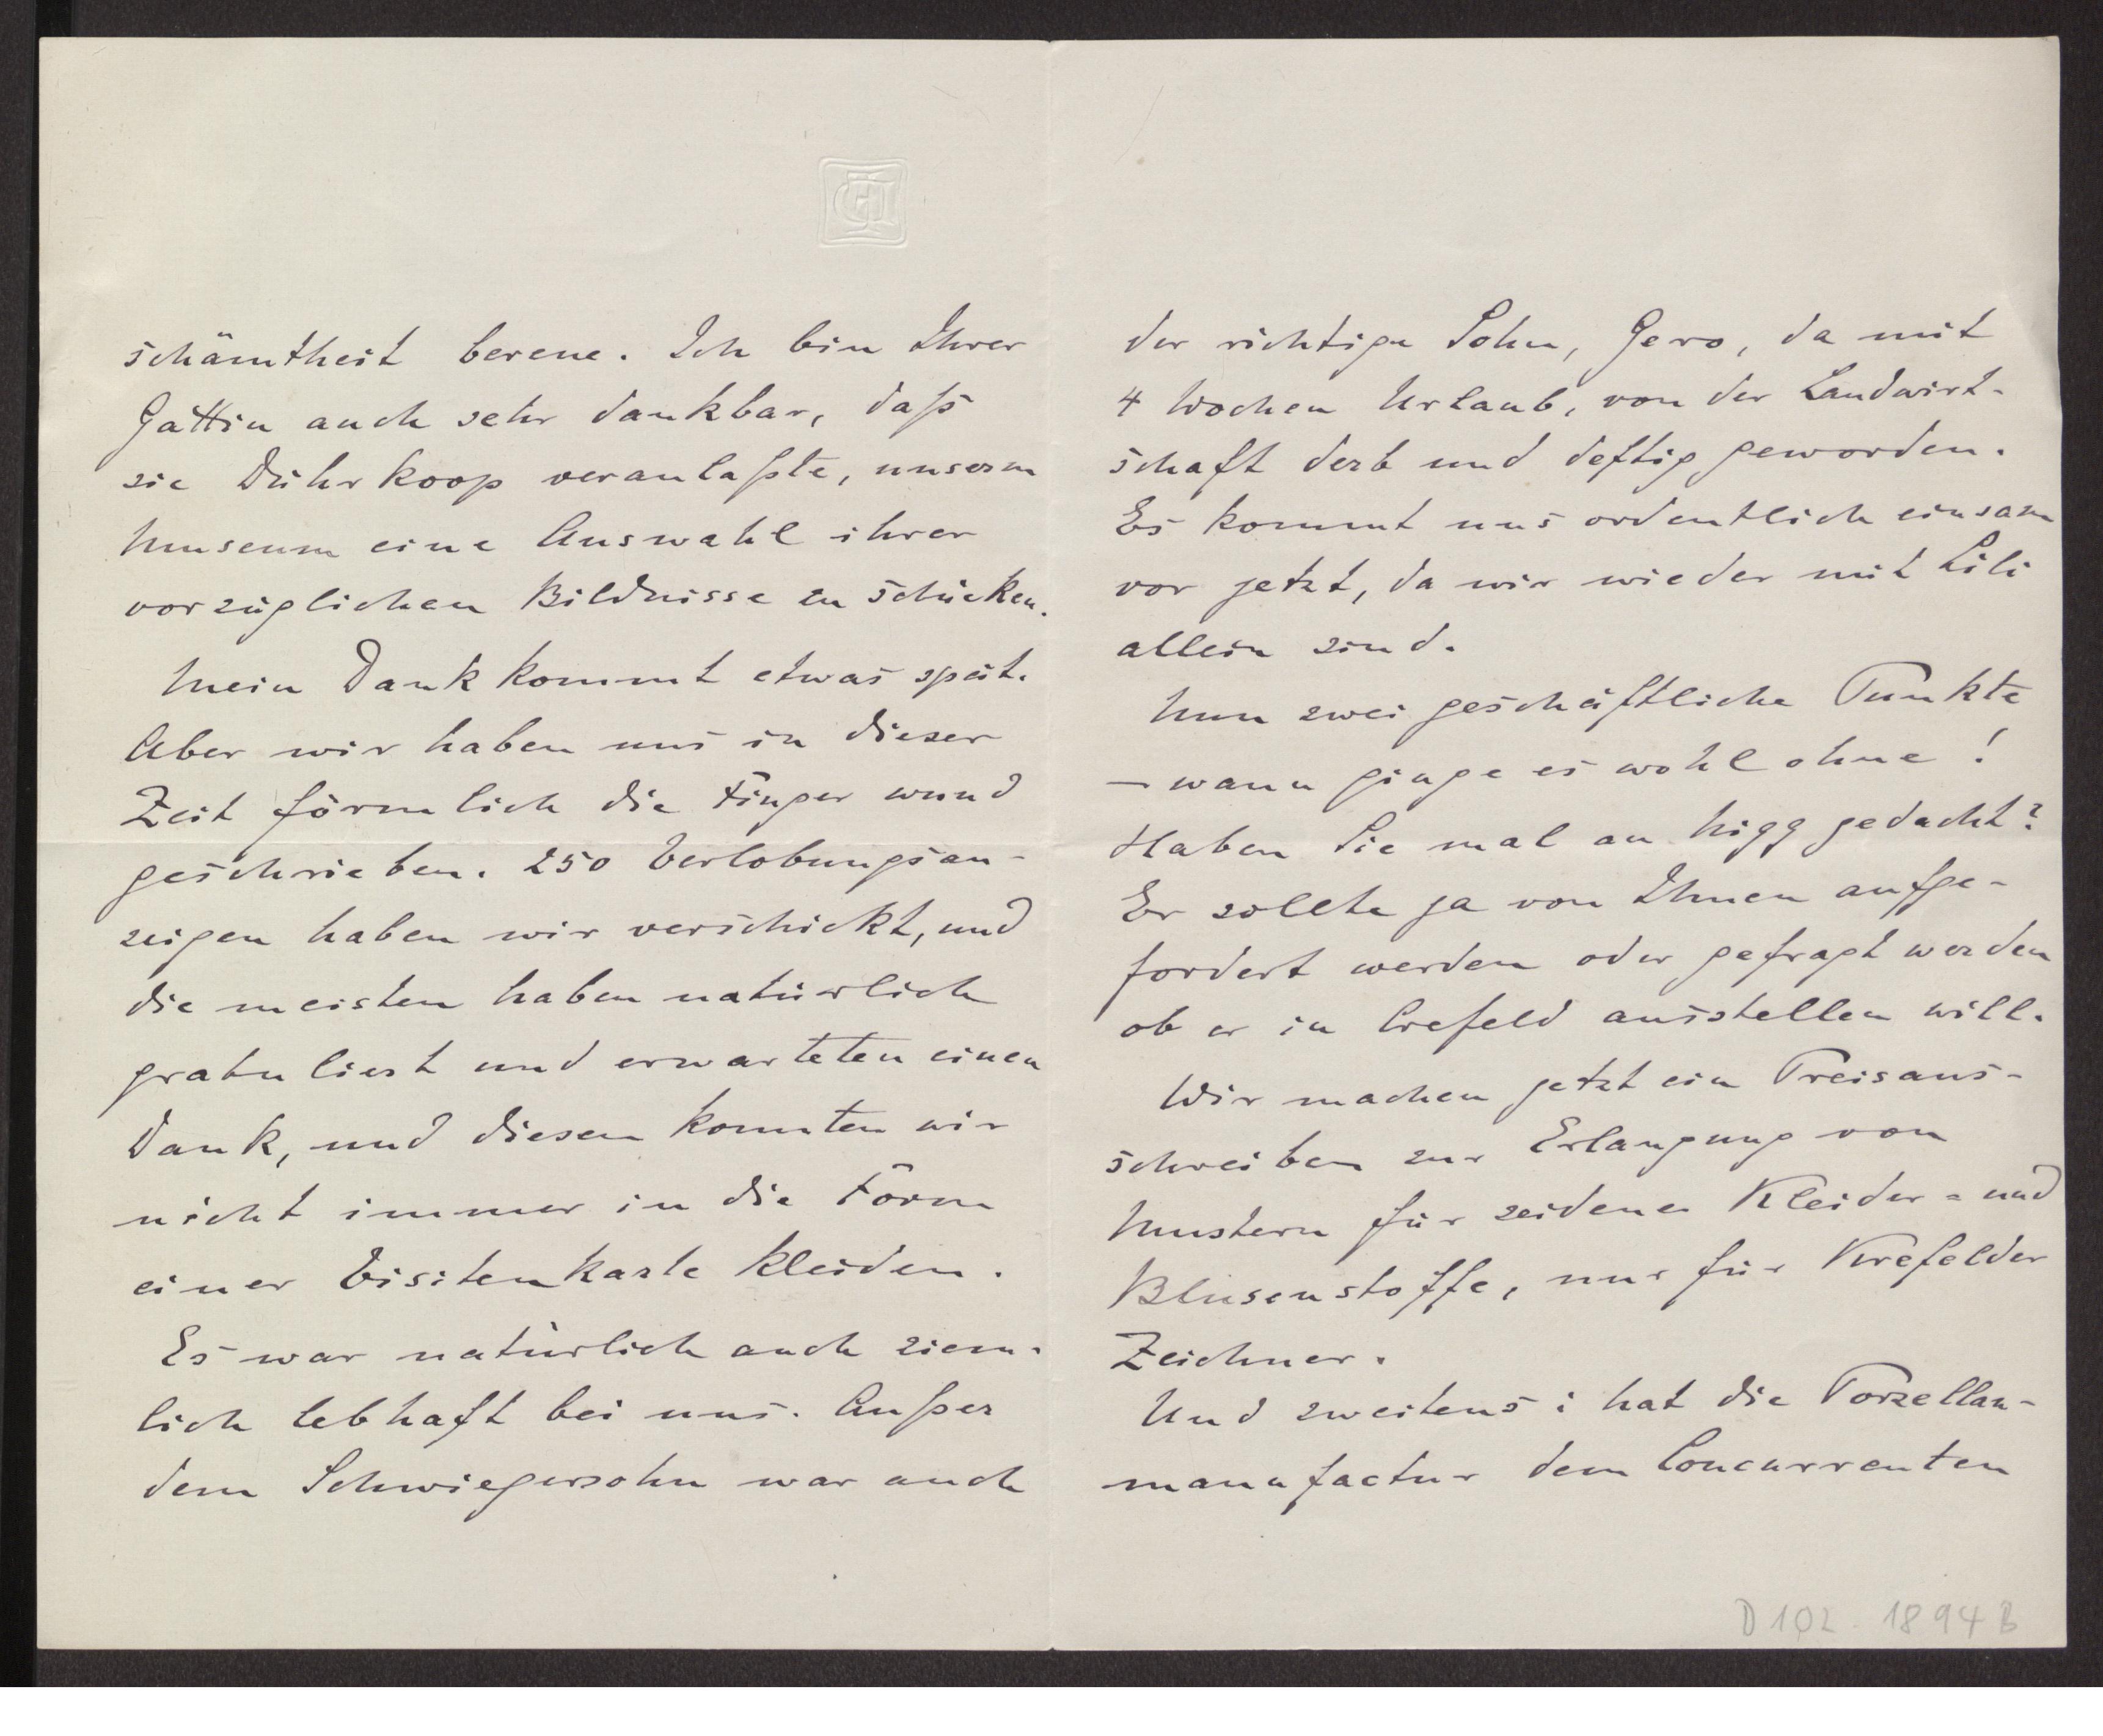 schämtheit bereue. Ich bin Ihrer
Gattin auch sehr dankbar, daß
sie Dührkoop veranlaßte, unserm
Museum eine Auswahl ihrer
vorzüglichen Bildnisse zu schicken.
Mein Dank kommt etwas spät.
Aber wir haben uns in dieser
Zeit förmlich die Finger wund
geschrieben. 250 Verlobungsan-
zeigen haben wir verschickt, und
die meisten haben natürlich
gratuliert und erwarteten einen
Dank, und diesen konnten wir
nicht immer in die Form
einer Visitenkarte kleiden.
Es war natürlich auch ziem-
lich lebhaft bei uns. Außer
dem Schwiegersohn war auch
der richtige Sohn, Gero, da mit
4 Wochen Urlaub, von der Landwirt-
schaft derb und deftig geworden.
Es kommt uns ordentlich einsam
vor jetzt, da wir wieder mit Lili
allein sind.
Nun zwei geschäftliche Punkte
– wann ginge es wohl ohne!
Haben Sie mal an Nigg gedacht?
Er sollte ja von Ihnen aufge-
fordert werden oder gefragt werden
ob er in Crefeld ausstellen will.
Wir machen jetzt ein Preisaus-
schreiben zur Erlangung von
Mustern für seidene Kleider- und
Blusenstoffe, nur für Krefelder
Zeichner.
Und zweitens: hat die Porzellan-
manufactur dem Concurrenten
D 102. 1894 B